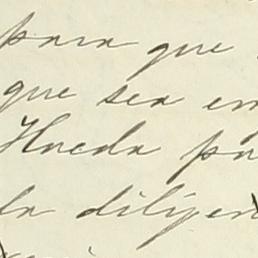 para que
que sea em
Haeda pa
la diligen